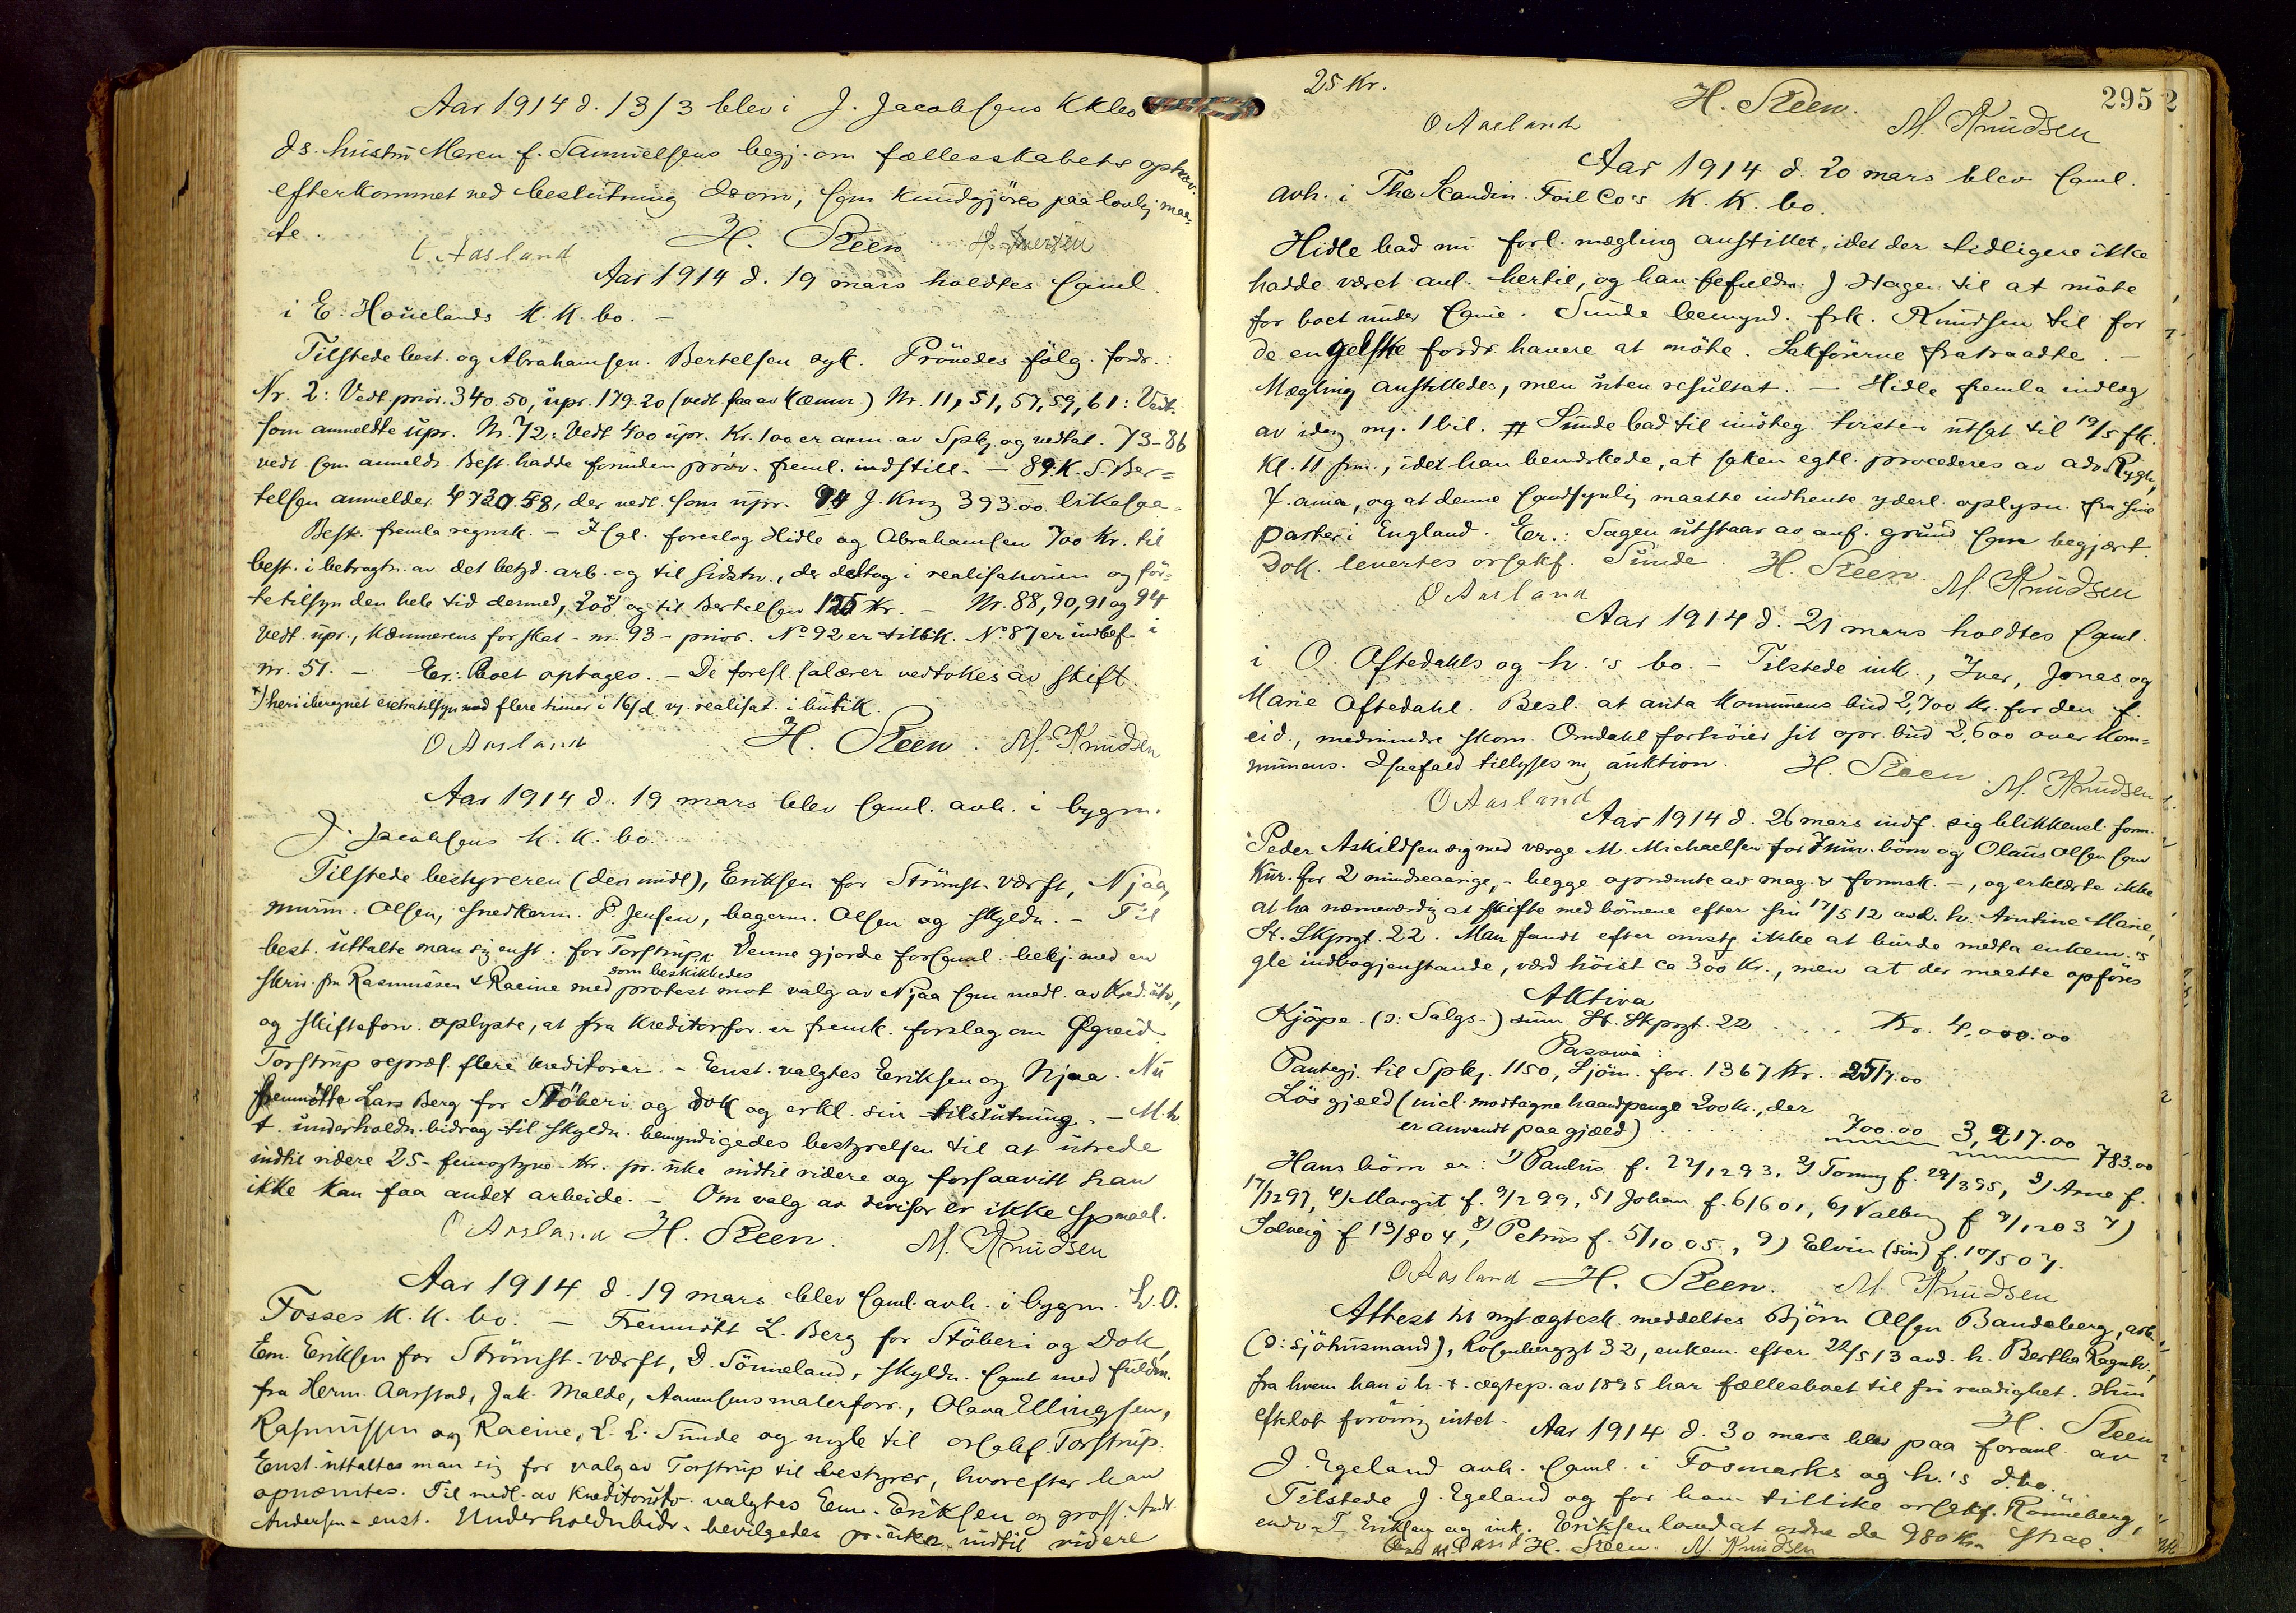 Aar 1914 d. 13/3 blev i J. Jacobsens Kkbo
ds. hustru Maren f. Samuelsens begj. om fællesskabets ophæv.
efterkommet ved beslutning dsom, som kundgjöres paa lovlig maa-
te.
O Aasland H. Steen
Aar 1914 d. 19 mars holdtes saml.
i E. Houelands K. K. bo. –
Tilstede best. og Abrahamsen. Bertelsen syk. Prövedes fölg. fordr.:
Nr. 2: Vedt. prior. 340.50, upr. 179.20 (vedt. faa av Kæmn.) Nr. 11, 51, 57, 59, 61: Vedt.
som anmeldte upr. Nr. 72: Vedt 400 upr. Kr. 100 er anm. av Spbk. og vedtat. 73-86
vedt. som anmeldt. Best. hadde forinden pröv. freml. indstill. – 89. K. S. Ber-
telsen anmelder 4720.58, der vedt. som upr. 94 J. Krog 393.00 likesaa.
Best. fremla regnsk. – Fsgl. foreslog Hidle og Abrahamsen 700 Kr. til
best. i betragtn. av det betyd. arb. og til sidstn., der deltog i realisationen og för-
te tilsyn den hele tid dermed, 200 og til Bertelsen 125 Kr. – Nr. 88, 90, 91 og 94
vedt. upr., Kæmnerens for skat – nr. 93 – prior. No 92 er tilbk. No 87 er indbef. i
nr. 51. – Er.: Boet optages. – De foresl. salærer vedtokes av skift.
*) heri iberegnet extratilsyn med flere timer i 16/d. v. realisat. i butik.
O Aasland H. Steen. M. Knudsen
Aar 1914 d. 19 mars blev saml. avh. i bygm.
J. Jacobsens K. K. bo.
Tilstede bestyreren (den midl), Eriksen for Strömst. Værft, Njaa,
murm. Olsen, snedkerm. P. Jensen, bagerm. Olsen og skyldn. – Til
best. uttalte man sig enst. for Torstrup. Denne gjorde forsaml. bekj. med en
skriv. fra Rasmussen & Racine med protest mot valg av Njaa som medl. av Kred.utv.,
som beskikkedes
og skifteforv. oplyste, at fra Kreditorfor. er fremk. forslag om Øgreid.
Torstrup repræs. flere kreditorer. – Enst. valgtes Eriksen og Njaa. Nu
fremmötte Lars Berg for Stöberi og dok og erkl. sin tilslutning. – M. h.
t. underholdn.bidrag til skyldn. bemyndigedes bestyrelsen til at utrede
indtil videre 25 – femogtyve – Kr. pr. uke indtil videre og forsaavitt han
ikke kan faa andet arbeide. – Om valg av revisor er ikke spmaal.
O Aasland H. Steen. M. Knudsen
Aar 1914 d. 19 mars blev saml. avh. i bygm. L. O.
Fosses K. K. bo. – Fremmött L. Berg for Stöberi og Dok,
Em. Eriksen for Strömst. Værft, D. Sömeland, skyldn. samt med fuldm.
fra Herm. Aarstad, Jak. Malde, Aanensens malerforr., Olava Ellingsen,
Rasmussen og Racine, L. L. Sunde og nyble til orsakf. Torstrup.
Enst. uttaltes man sig for valg av Torstrup til bestyrer, hvorefter han
opnæmtes. Til medl. av Kreditorutv. valgtes Em. Eriksen og gross. Andr.
Andersen – enst. Underholdnbidr. bevilgedes pr. uke indtil videre
25 Kr. H. Steen. 295
O Aasland M. Knudsen
Aar 1914 d. 20 mars blev saml.
avh. i The Scandin. Foil Co's K. K. bo.
Hidle bad nu forl. mægling anstillet, idet der tidligere ikke
hadde været anl. hertil, og han befuldm. J Hagen til at möte
for boet under same. Sunde bemynd. frk. Knudsen til for
de engelske fordr.havere at möte. Sakförerne fratraadte. –
Mægling anstilledes, men uten resultat. – Hidle fremla indlæg
av idag m. 1 bil. # Sunde bad til imöteg. tvisten utsat til 19/5 fk.
Kl. 11 fm., idet han bemerkede, at saken egtl. procederes av adv. Rygh,
X.ania, og at denne sandsynlig maatte indhente yderl. oplysn. fra sine
parter i England. Er.: Sagen utstaar av anf. grund som begjært.
Dok. levertes orsakf. Sunde. H. Steen. M. Knudsen
O Aasland
Aar 1914 d. 21 mars holdtes saml.
i O. Oftedahls og h.'s bo. – Tilstede ink., Iver, Jonas og
Marie Oftedahl. Besl. at anta Kommunens bud 2,700 Kr. for den f.
eid., medmindre skom. Omdahl forhöier sit opr. bud 2,600 over Kom-
munens. Isaafald tillyses ny auktion. H. Steen. M. Knudsen
O Aasland
Aar 1914 d. 26 mars indf. sig blikkensl. form.
Peder Askildsen sig med værge M. Michaelsen for 7 um. börn og Olaus Olsen som
Kur. for 2 mindreaarige, – begge opnæmte av mag. & formsk. –, og erklærte ikke
at ha nævneværdig at skifte med börnene efter sin 17/5 12 avd. h. Arntine Marie,
St. Skprgt. 22. Man fandt efter omst. ikke at burde medta enkem.'s
gle indbogjenstande, værd höist ca 300 Kr., men at der maatte opföres
Aktiva
Kjöpe- (ɔ: Salgs-) sum St. Skprgt. 22 .... Kr. 4,000.00
Passiva:
Pantegj. til Spbk. 1150, Sjöm. for. 1367 Kr. 2517.00
Lös gjæld (incl. modtagne haandpenge 200 Kr., der
er anvendt paa gjæld) 700.00 3,217.00 783.00
Hans börn er: 1) Paulus f. 22/12 93, 2) Tomny f. 29/3 95, 3) Arne f.
17/12 97, 4) Margit f. 9/2 99, 5) Johan f. 6/6 01, 6) Valborg f 9/12 03 7)
Solveig f 13/8 04, 8) Petrus f. 5/10 05, 9) Elvin (sön) f. 10/5 07.
O Aasland H. Steen. M. Knudsen
Attest til nyt ægtesk. meddeltes Björn Olsen Bandeberg, arb.
(ɔ: sjöhusmand), Rosenberggt 32, enkem. efter 22/5 13 avd. h. Bertha Ragnh.,
fra hvem han i h. t. ægtep. av 1895 har fællesboet til fri raadighet. Hun
efterlot forövrig intet. H. Steen
Aar 1914 d. 30 mars blev paa foranl. av
J. Egeland avh. saml. i Fosmarks og h.'s d.bo.
Tilstede J. Egeland og for ham tillike orsakf. Rönneberg,
endv. T. Eriksen og ink. Eriksen loved at ordne de 980 Kr. strax.
H. Steen. M. Knudsen